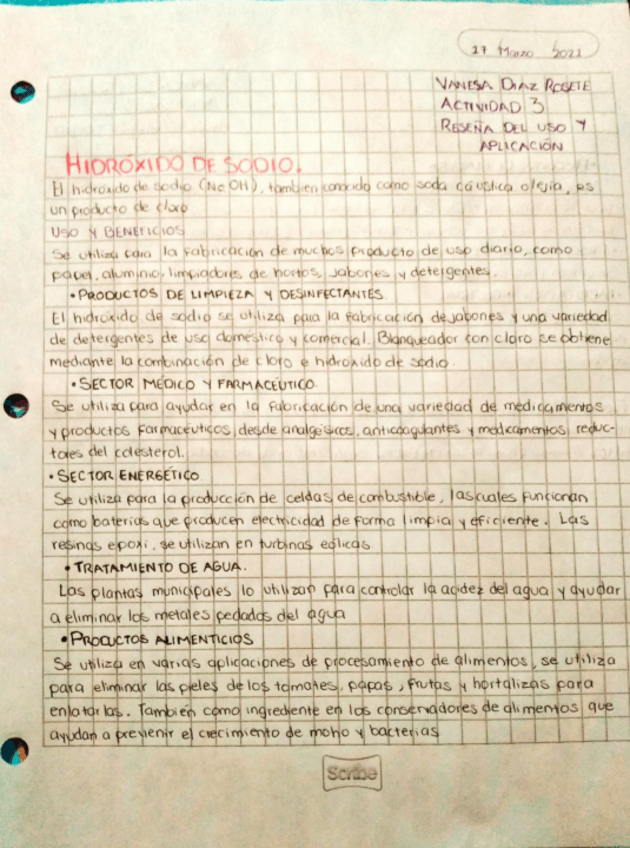 17 Marzo 2021
VANESA DIAZ ROSETE
ACTIVIDAD 3
RESEÑA DEL USO Y
APLICACIÓN
HIDRÓXIDO DE SODIO.
El hidróxido de sodio (NaOH), tambien conocido como soda cáustica o lejia, es
un producto de cloro
USO Y BENEFICIOS
Se utiliza para la fabricación de muchos producto de uso diario, como
papel, aluminio, limpiadores de hornos, jabones y detergentes.
• PRODUCTOS DE LIMPIEZA Y DESINFECTANTES
El hidróxido de sodio se utiliza para la fabricación de jabones y una variedad
de detergentes de uso doméstico y comercial. Blanqueador con cloro se obtiene
mediante la combinación de cloro e hidroxido de sodio.
• SECTOR MÉDICO Y FARMACÉUTICO
Se utiliza para ayudar en la fabricación de una variedad de medicamentos
y productos farmacéuticos, desde analgésicos, anticoagulantes y medicamentos reduc-
tores del colesterol.
• SECTOR ENERGÉTICO
Se utiliza para la producción de celdas de combustible, las cuales funcionan
como baterías que producen electricidad de forma limpia y eficiente. Las
resinas epoxi, se utilizan en turbinas eólicas
• TRATAMIENTO DE AGUA.
Las plantas municipales lo utilizan para controlar la acidez del agua y ayudar
a eliminar los metales pedados del agua
• PRODUCTOS ALIMENTICIOS
Se utiliza en varias aplicaciones de procesamiento de alimentos, se utiliza
para eliminar las pieles de los tomates, papas, frutas y hortalizas para
enlatarlas. También como ingrediente en los conservadores de alimentos que
ayudan a prevenir el crecimiento de moho y bacterias
Scribe